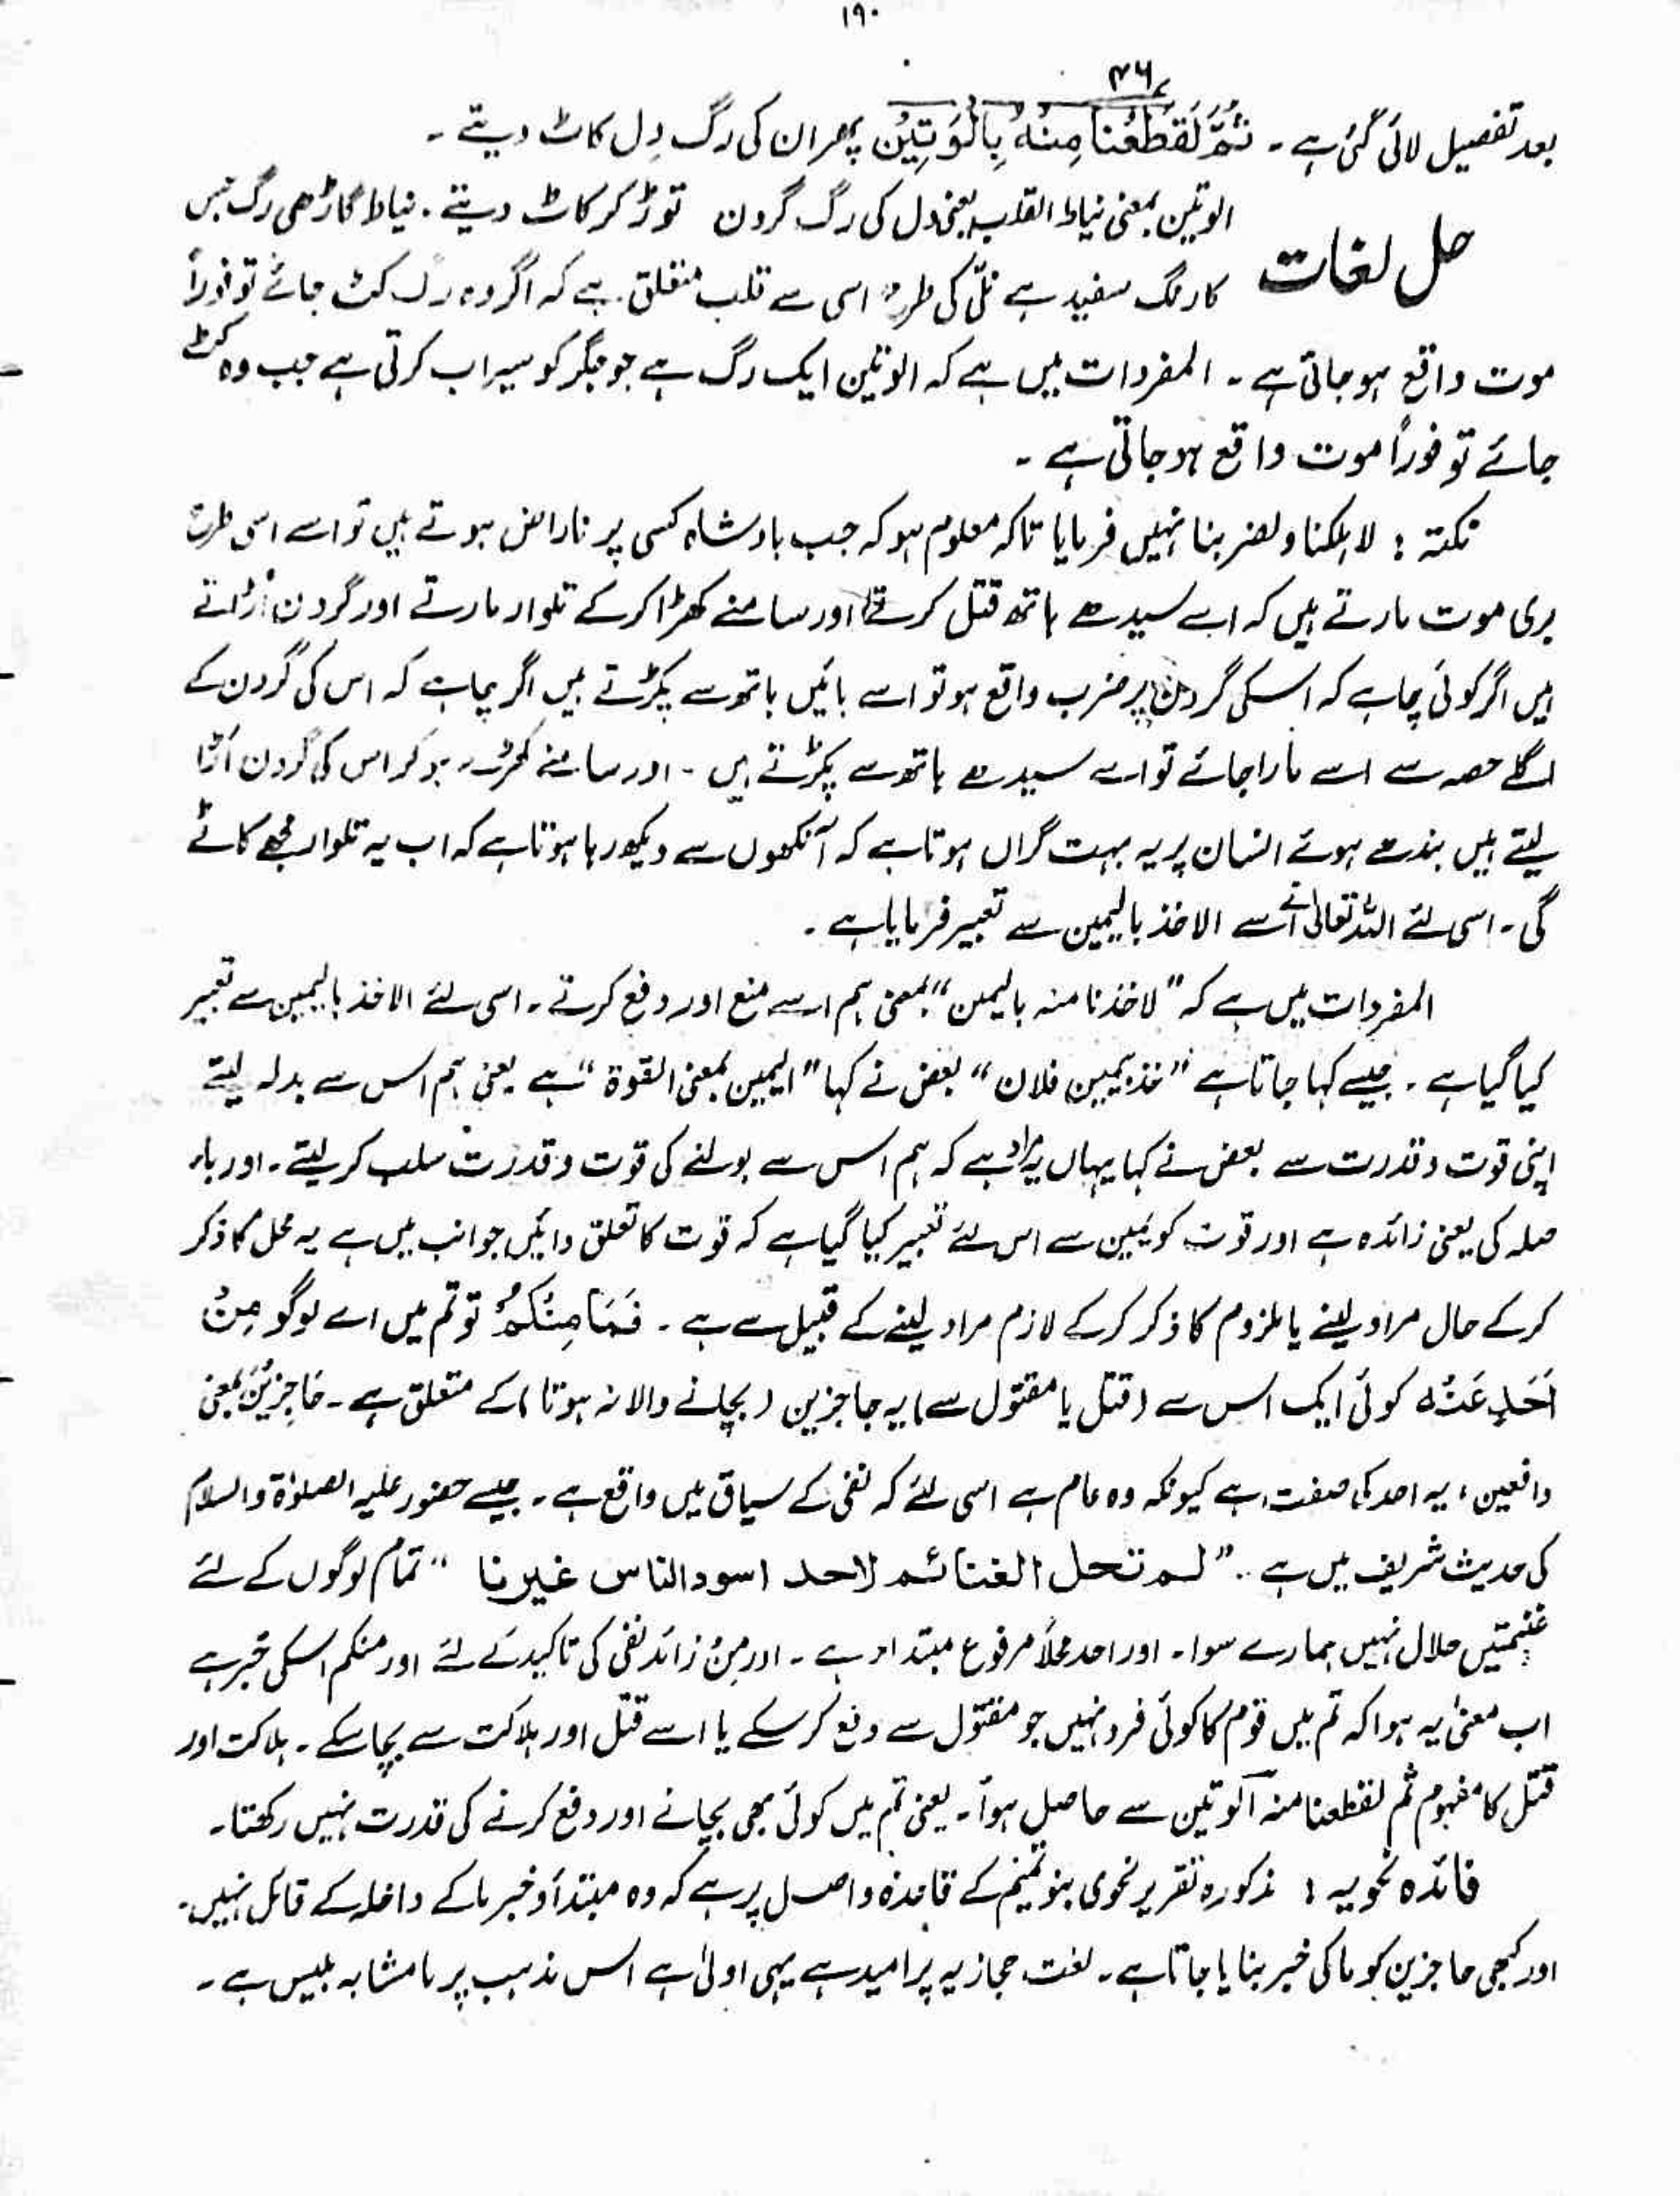 ۱۹۰
۴۶
بعد تفصیل لائی گئی ہے ۔ ثُمَّ لَقَطَعْنَا مِنْهُ بِالْوَتِيْنَ پھر ان کی رگ دِل کاٹ دیتے ۔
حل لغات
الوتین بمعنی نیاط القلب یعنی دل کی رگ گردن توڑ کر کاٹ دیتے ۔ نیاط گاڑھی رگ جس
کا رنگ سفید ہے نلّی کی طرح اسی سے قلب متعلق ہے کہ اگر وہ رگ کٹ جائے تو فوراً
موت واقع ہو جاتی ہے ۔ المفردات میں ہے کہ الوتین ایک رگ ہے جو جگر کو سیراب کرتی ہے جب وہ کٹ
جائے تو فوراً موت واقع ہو جاتی ہے ۔
نکتہ : لاہلکنا ولضربنا نہیں فرمایا تاکہ معلوم ہو کہ جب بادشاہ کسی پر ناراض ہوتے ہیں تو اسے اسی طرح
بری موت مارتے ہیں کہ اسے سیدھے ہاتھ قتل کرتے اور سامنے کھڑا کر کے تلوار مارتے اور گردن اُڑاتے
ہیں اگر کوئی چاہے کہ اسکی گردن پر ضرب واقع ہو تو اسے بائیں ہاتھ سے پکڑتے ہیں اگر چاہے کہ اس کی گردن کے
اگلے حصہ سے اسے مارا جائے تو اسے سیدھے ہاتھ سے پکڑتے ہیں ۔ اور سامنے کھڑے ہو کر اس کی گردن اُڑا
لیتے ہیں بندھے ہوئے انسان پر یہ بہت گراں ہوتا ہے کہ آنکھوں سے دیکھ رہا ہوتا ہے کہ اب یہ تلوار مجھے کاٹے
گی ۔ اسی لئے اللہ تعالیٰ نے اسے الاخذ بالیمین سے تعبیر فرمایا ہے ۔
المفردات میں ہے کہ ”لاخذنا منہ بالیمین“ بمعنی ہم اسے منع اور دفع کرتے ۔ اسی لئے الاخذ بالیمین سے تعبیر
کیا گیا ہے ۔ جیسے کہا جاتا ہے ”خذ بیمین فلان“ بعض نے کہا ”الیمین بمعنی القوۃ“ ہے یعنی ہم اس سے بدلہ لیتے
اپنی قوت و قدرت سے بعض نے کہا یہاں یہ مراد ہے کہ ہم اس سے بولنے کی قوت و قدرت سلب کر لیتے ۔ اور باء
صلہ کی یعنی زائدہ ہے اور قوت کو یمین سے اس لئے تعبیر کیا گیا ہے کہ قوت کا تعلق دائیں جوانب میں ہے یہ محل کا ذکر
کر کے حال مراد لینے یا ملزوم کا ذکر کر کے لازم مراد لینے کے قبیل سے ہے ۔ فَمَا مِنْكُمْ تو تم میں اے لوگو مِنْ
اَحَدٍ عَنْهُ کوئی ایک اس سے (قتل یا مقتول سے) یہ حاجزین (بچانے والا نہ ہوتا) کے متعلق ہے ۔ حَاجِزِیْنَ بمعنی
دافعین ، یہ احد کی صفت ہے کیونکہ وہ عام ہے اسی لئے کہ نفی کے سیاق میں واقع ہے ۔ جیسے حضور علیہ الصلوٰۃ والسلام
کی حدیث شریف میں ہے .. ”لم تحل الغنائم لاحد اسود الناس غیرنا “ تمام لوگوں کے لئے
غنیمتیں حلال نہیں ہمارے سوا ۔ اور احد محلاً مرفوع مبتداء ہے ۔ اور مِنْ زائد نفی کی تاکید کے لئے اور منکم اسکی خبر ہے
اب معنیٰ یہ ہوا کہ تم میں قوم کا کوئی فرد نہیں جو مقتول سے دفع کر سکے یا اسے قتل اور ہلاکت سے بچا سکے ۔ ہلاکت اور
قتل کا مفہوم ثم لقطعنا منہ الوتین سے حاصل ہوا ۔ یعنی تم میں کوئی بھی بچانے اور دفع کرنے کی قدرت نہیں رکھتا ۔
فائدہ نحویہ : مذکورہ تقریر نحوی بنو تمیم کے قاعدہ و اصل پر ہے کہ وہ مبتدأ و خبر ما کے داخلہ کے قائل نہیں ۔
اور کبھی حاجزین کو ما کی خبر بنایا جاتا ہے ۔ لغت حجازیہ پر امید ہے یہی اولیٰ ہے اس مذہب پر ما مشابہ بلیس ہے ۔